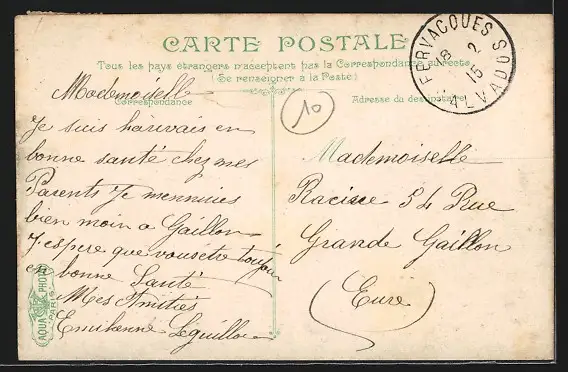 CARTE POSTALE
Tous les pays étrangers n'acceptent pas la Correspondance au recto
(Se renseigner à la Poste)
FERVACQUES
18 2
15
CALVADOS
10
Correspondance
Adresse du destinataire
Mademoiselle
Je suis harivais en
bonne santé chez mes
Parents Je mennuies
bien moin a Gaillon
J'espere que vous ète toujour
en bonne Santé
Mes Amitiés
Leguillou
Mademoiselle
Racine 54 Rue
Grande Gaillon
(Eure)
AQUA PHOTO
PARIS